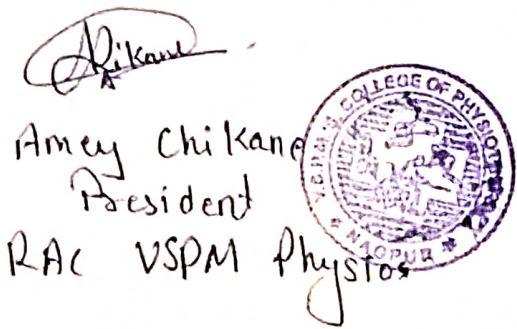 Chikane
Amey Chikane
President
RAC VSPM Physios
V.S.P.M'S COLLEGE OF PHYSIOTHERAPY
★ NAGPUR ★